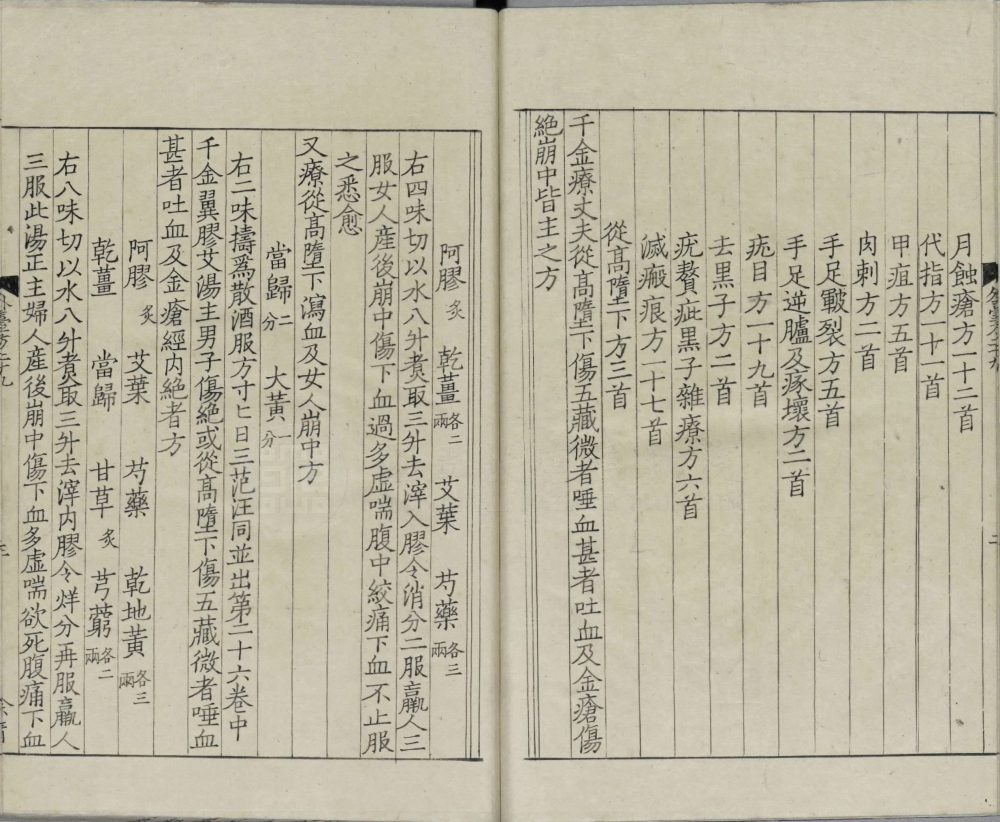 月蝕瘡方一十二首
代指方一十一首
甲疽方五首
肉刺方二首
手足皸裂方五首
手足逆臚及瘃壞方二首
疣目方一十九首
去黑子方二首
疣贅疵黑子雜療方六首
滅瘢痕方一十七首
從高墮下方三首
千金療丈夫從高墮下傷五藏微者唾血甚者吐血及金瘡傷
絶崩中皆主之方
阿膠炙 乾薑各二兩 艾葉 芍藥各三兩
右四味切以水八升煑取三升去滓入膠令消分二服羸人三
服女人産後崩中傷下血過多虛喘腹中絞痛下血不止服
之悉愈
又療從高墮下瀉血及女人崩中方
當歸二分 大黃一分
右二味擣爲散酒服方寸匕日三范汪同並出第二十六卷中
千金翼膠艾湯主男子傷絶或從高墮下傷五藏微者唾血
甚者吐血及金瘡經内絶者方
阿膠炙 艾葉 芍藥 乾地黃各三兩
乾薑 當歸 甘草炙 芎藭各二兩
右八味切以水八升煑取三升去滓内膠令烊分再服羸人
三服此湯正主婦人産後崩中傷下血多虛喘欲死腹痛下血